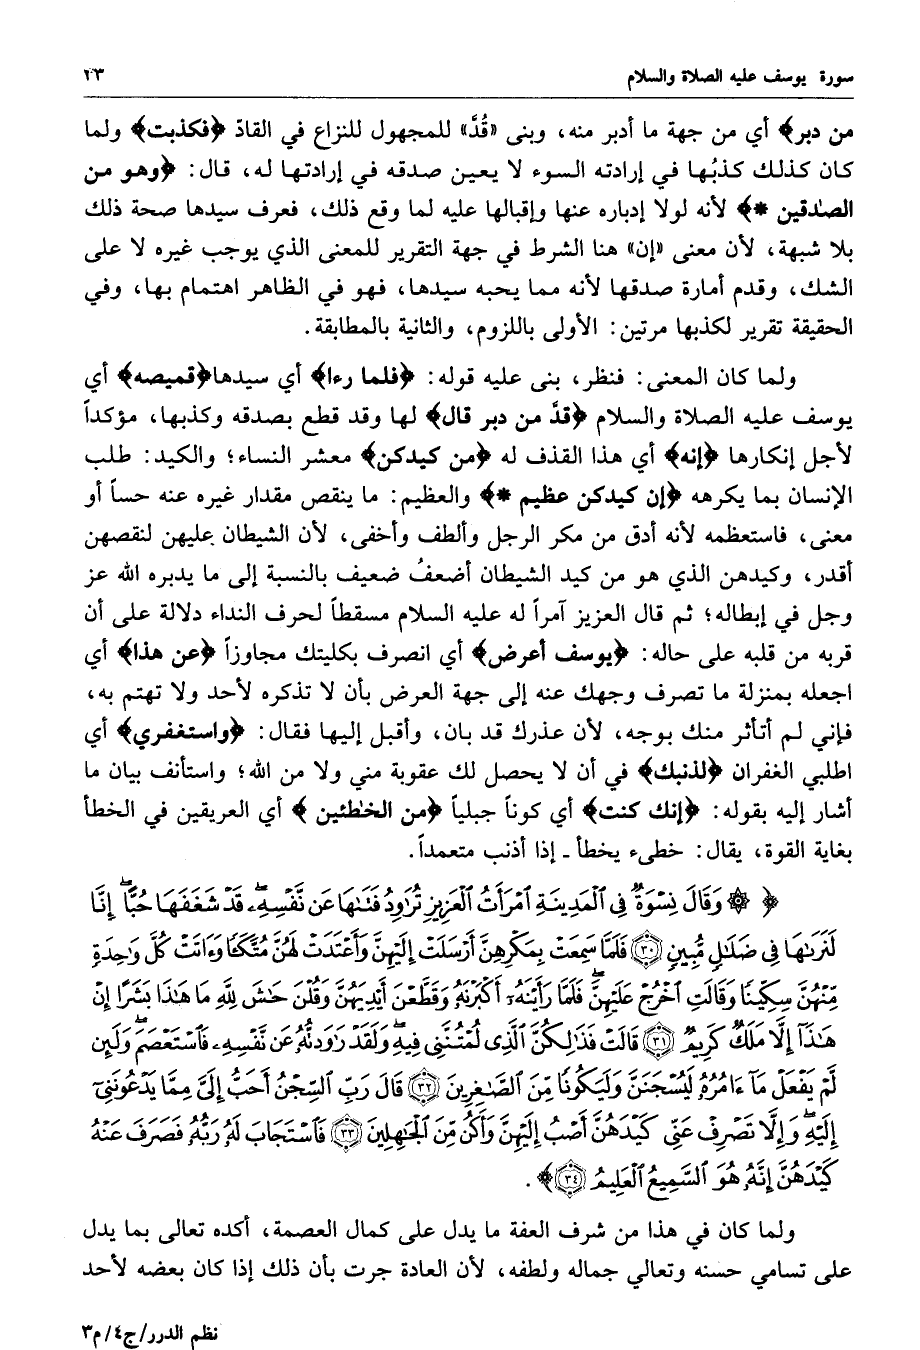 سورة يوسف عليه الصلاة والسلام ٣٣
من دبر﴾ أي من جهة ما أدبر منه، وبنى «قُدَّ» للمجهول للنزاع في القادّ ﴿فكذبت﴾ ولما
كان كذلك كذبُها في إرادته السوء لا يعين صدقه في إرادتها له، قال: ﴿وهو من
الصٰدقين *﴾ لأنه لولا إدباره عنها وإقبالها عليه لما وقع ذلك، فعرف سيدها صحة ذلك
بلا شبهة، لأن معنى «إن» هنا الشرط في جهة التقرير للمعنى الذي يوجب غيره لا على
الشك، وقدم أمارة صدقها لأنه مما يحبه سيدها، فهو في الظاهر اهتمام بها، وفي
الحقيقة تقرير لكذبها مرتين: الأولى باللزوم، والثانية بالمطابقة.
ولما كان المعنى: فنظر، بنى عليه قوله: ﴿فلما رءا﴾ أي سيدها﴿قميصه﴾ أي
يوسف عليه الصلاة والسلام ﴿قدَّ من دبر قال﴾ لها وقد قطع بصدقه وكذبها، مؤكداً
لأجل إنكارها ﴿إنه﴾ أي هذا القذف له ﴿من كيدكن﴾ معشر النساء؛ والكيد: طلب
الإنسان بما يكرهه ﴿إن كيدكن عظيم *﴾ والعظيم: ما ينقص مقدار غيره عنه حساً أو
معنى، فاستعظمه لأنه أدق من مكر الرجل وألطف وأخفى، لأن الشيطان عليهن لنقصهن
أقدر، وكيدهن الذي هو من كيد الشيطان أضعفُ ضعيف بالنسبة إلى ما يدبره الله عز
وجل في إبطاله؛ ثم قال العزيز آمراً له عليه السلام مسقطاً لحرف النداء دلالة على أن
قربه من قلبه على حاله: ﴿يوسف أعرض﴾ أي انصرف بكليتك مجاوزاً ﴿عن هذا﴾ أي
اجعله بمنزلة ما تصرف وجهك عنه إلى جهة العرض بأن لا تذكره لأحد ولا تهتم به،
فإني لم أتأثر منك بوجه، لأن عذرك قد بان، وأقبل إليها فقال: ﴿واستغفري﴾ أي
اطلبي الغفران ﴿لذنبك﴾ في أن لا يحصل لك عقوبة مني ولا من الله؛ واستأنف بيان ما
أشار إليه بقوله: ﴿إنك كنت﴾ أي كوناً جبلياً ﴿من الخطئين ﴾ أي العريقين في الخطأ
بغاية القوة، يقال: خطىء يخطأ ـ إذا أذنب متعمداً.
﴿ ۞ وَقَالَ نِسْوَةٌ فِي ٱلْمَدِينَةِ ٱمْرَأَتُ ٱلْعَزِيزِ تُرَٰوِدُ فَتَىٰهَا عَن نَّفْسِهِۦۖ قَدْ شَغَفَهَا حُبًّاۖ إِنَّا
لَنَرَىٰهَا فِي ضَلَٰلٍ مُّبِينٍ ﴿٣٠﴾ فَلَمَّا سَمِعَتْ بِمَكْرِهِنَّ أَرْسَلَتْ إِلَيْهِنَّ وَأَعْتَدَتْ لَهُنَّ مُتَّكَـًٔا وَءَاتَتْ كُلَّ وَٰحِدَةٍ
مِّنْهُنَّ سِكِّينًا وَقَالَتِ ٱخْرُجْ عَلَيْهِنَّۖ فَلَمَّا رَأَيْنَهُۥٓ أَكْبَرْنَهُۥ وَقَطَّعْنَ أَيْدِيَهُنَّ وَقُلْنَ حَٰشَ لِلَّهِ مَا هَٰذَا بَشَرًا إِنْ
هَٰذَآ إِلَّا مَلَكٌ كَرِيمٌ ﴿٣١﴾ قَالَتْ فَذَٰلِكُنَّ ٱلَّذِي لُمْتُنَّنِي فِيهِۖ وَلَقَدْ رَٰوَدتُّهُۥ عَن نَّفْسِهِۦ فَٱسْتَعْصَمَۖ وَلَئِن
لَّمْ يَفْعَلْ مَآ ءَامُرُهُۥ لَيُسْجَنَنَّ وَلَيَكُونًا مِّنَ ٱلصَّٰغِرِينَ ﴿٣٢﴾ قَالَ رَبِّ ٱلسِّجْنُ أَحَبُّ إِلَيَّ مِمَّا يَدْعُونَنِيٓ
إِلَيْهِۖ وَإِلَّا تَصْرِفْ عَنِّي كَيْدَهُنَّ أَصْبُ إِلَيْهِنَّ وَأَكُن مِّنَ ٱلْجَٰهِلِينَ ﴿٣٣﴾ فَٱسْتَجَابَ لَهُۥ رَبُّهُۥ فَصَرَفَ عَنْهُ
كَيْدَهُنَّۚ إِنَّهُۥ هُوَ ٱلسَّمِيعُ ٱلْعَلِيمُ ﴿٣٤﴾﴾.
ولما كان في هذا من شرف العفة ما يدل على كمال العصمة، أكده تعالى بما يدل
على تسامي حسنه وتعالي جماله ولطفه، لأن العادة جرت بأن ذلك إذا كان بعضه لأحد
نظم الدرر/ج٤/م٣